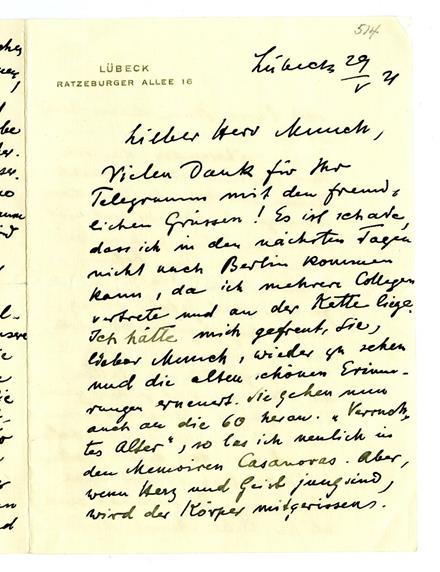 514
LÜBECK
RATZEBURGER ALLEE 16
Lübeck 29
V 21
Lieber Herr Munch,
Vielen Dank für Ihr
Telegramm mit den freund-
lichen Grüssen! Es ist schade,
dass ich in den nächsten Tagen
nicht nach Berlin kommen
kann, da ich mehrere Collegen
vertrete und an der Kette liege.
Ich hätte mich gefreut, Sie,
lieber Munch, wieder zu sehen
und die alten schönen Erinne-
rungen erneuert. Sie gehen nun
auch an die 60 heran. „Verruch-
tes Alter", so las ich neulich in
den Memoiren Casanovas. Aber,
wenn Herz und Geist jung sind,
wird der Körper mitgerissen.